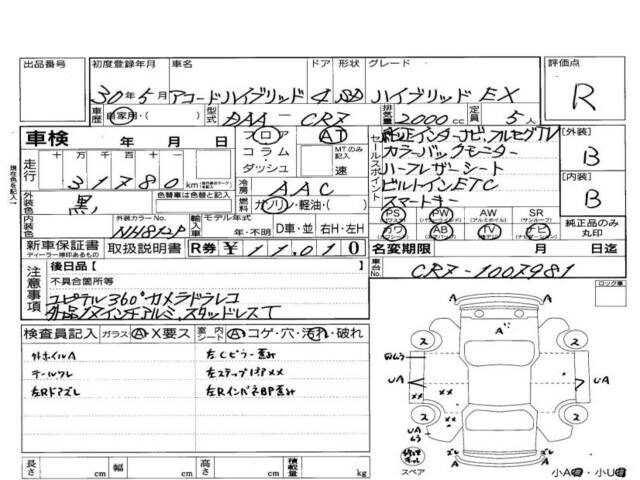 出品番号 初度登録年月 車名 ドア 形状 グレード 評価点
30年5月 アコードハイブリッド 4 SD ハイブリッド EX R
車歴 自家用・( ) 型式 DAA-CR7 排気量 2000cc 定員 5人
車検 年 月 日 フロア AT セールスポイント 純正インターナビ、フルセグTV [外装]
コラム MTのみ記入 カラーバックモニター B
走行 十万 千 百 十 ダッシュ 速 ハーフレザーシート
31780 km 冷房 AAC ビルトインETC [内装]
外装色 黒 色替車は色替と記入 燃料 ガソリン・軽油・( ) スマートキー B
PS PW AW SR
内装色 外装カラーNo. 輸入車 モデル年式 カワ AB TV ナビ 純正品のみ丸印
年・不明 D車・並 右H・左H
新車保証書 取扱説明書 R券 ¥11,010 名変期限 月 日迄
ディーラー捺印あるもの
注意事項 後日品[ ] 車台No. CR7-1007981
不具合箇所等 ロック車
ユピテル360°カメラドラレコ
検査員記入 ガラス A・X要ス 室内シート A・コゲ・穴・汚れ・破れ
外ホイルA 左Cピラー歪み
テールワレ
左Rドアズレ 左RインパネBP歪み
長さ cm 幅 cm 高さ cm 積載量 kg
スペア
現在色を記入